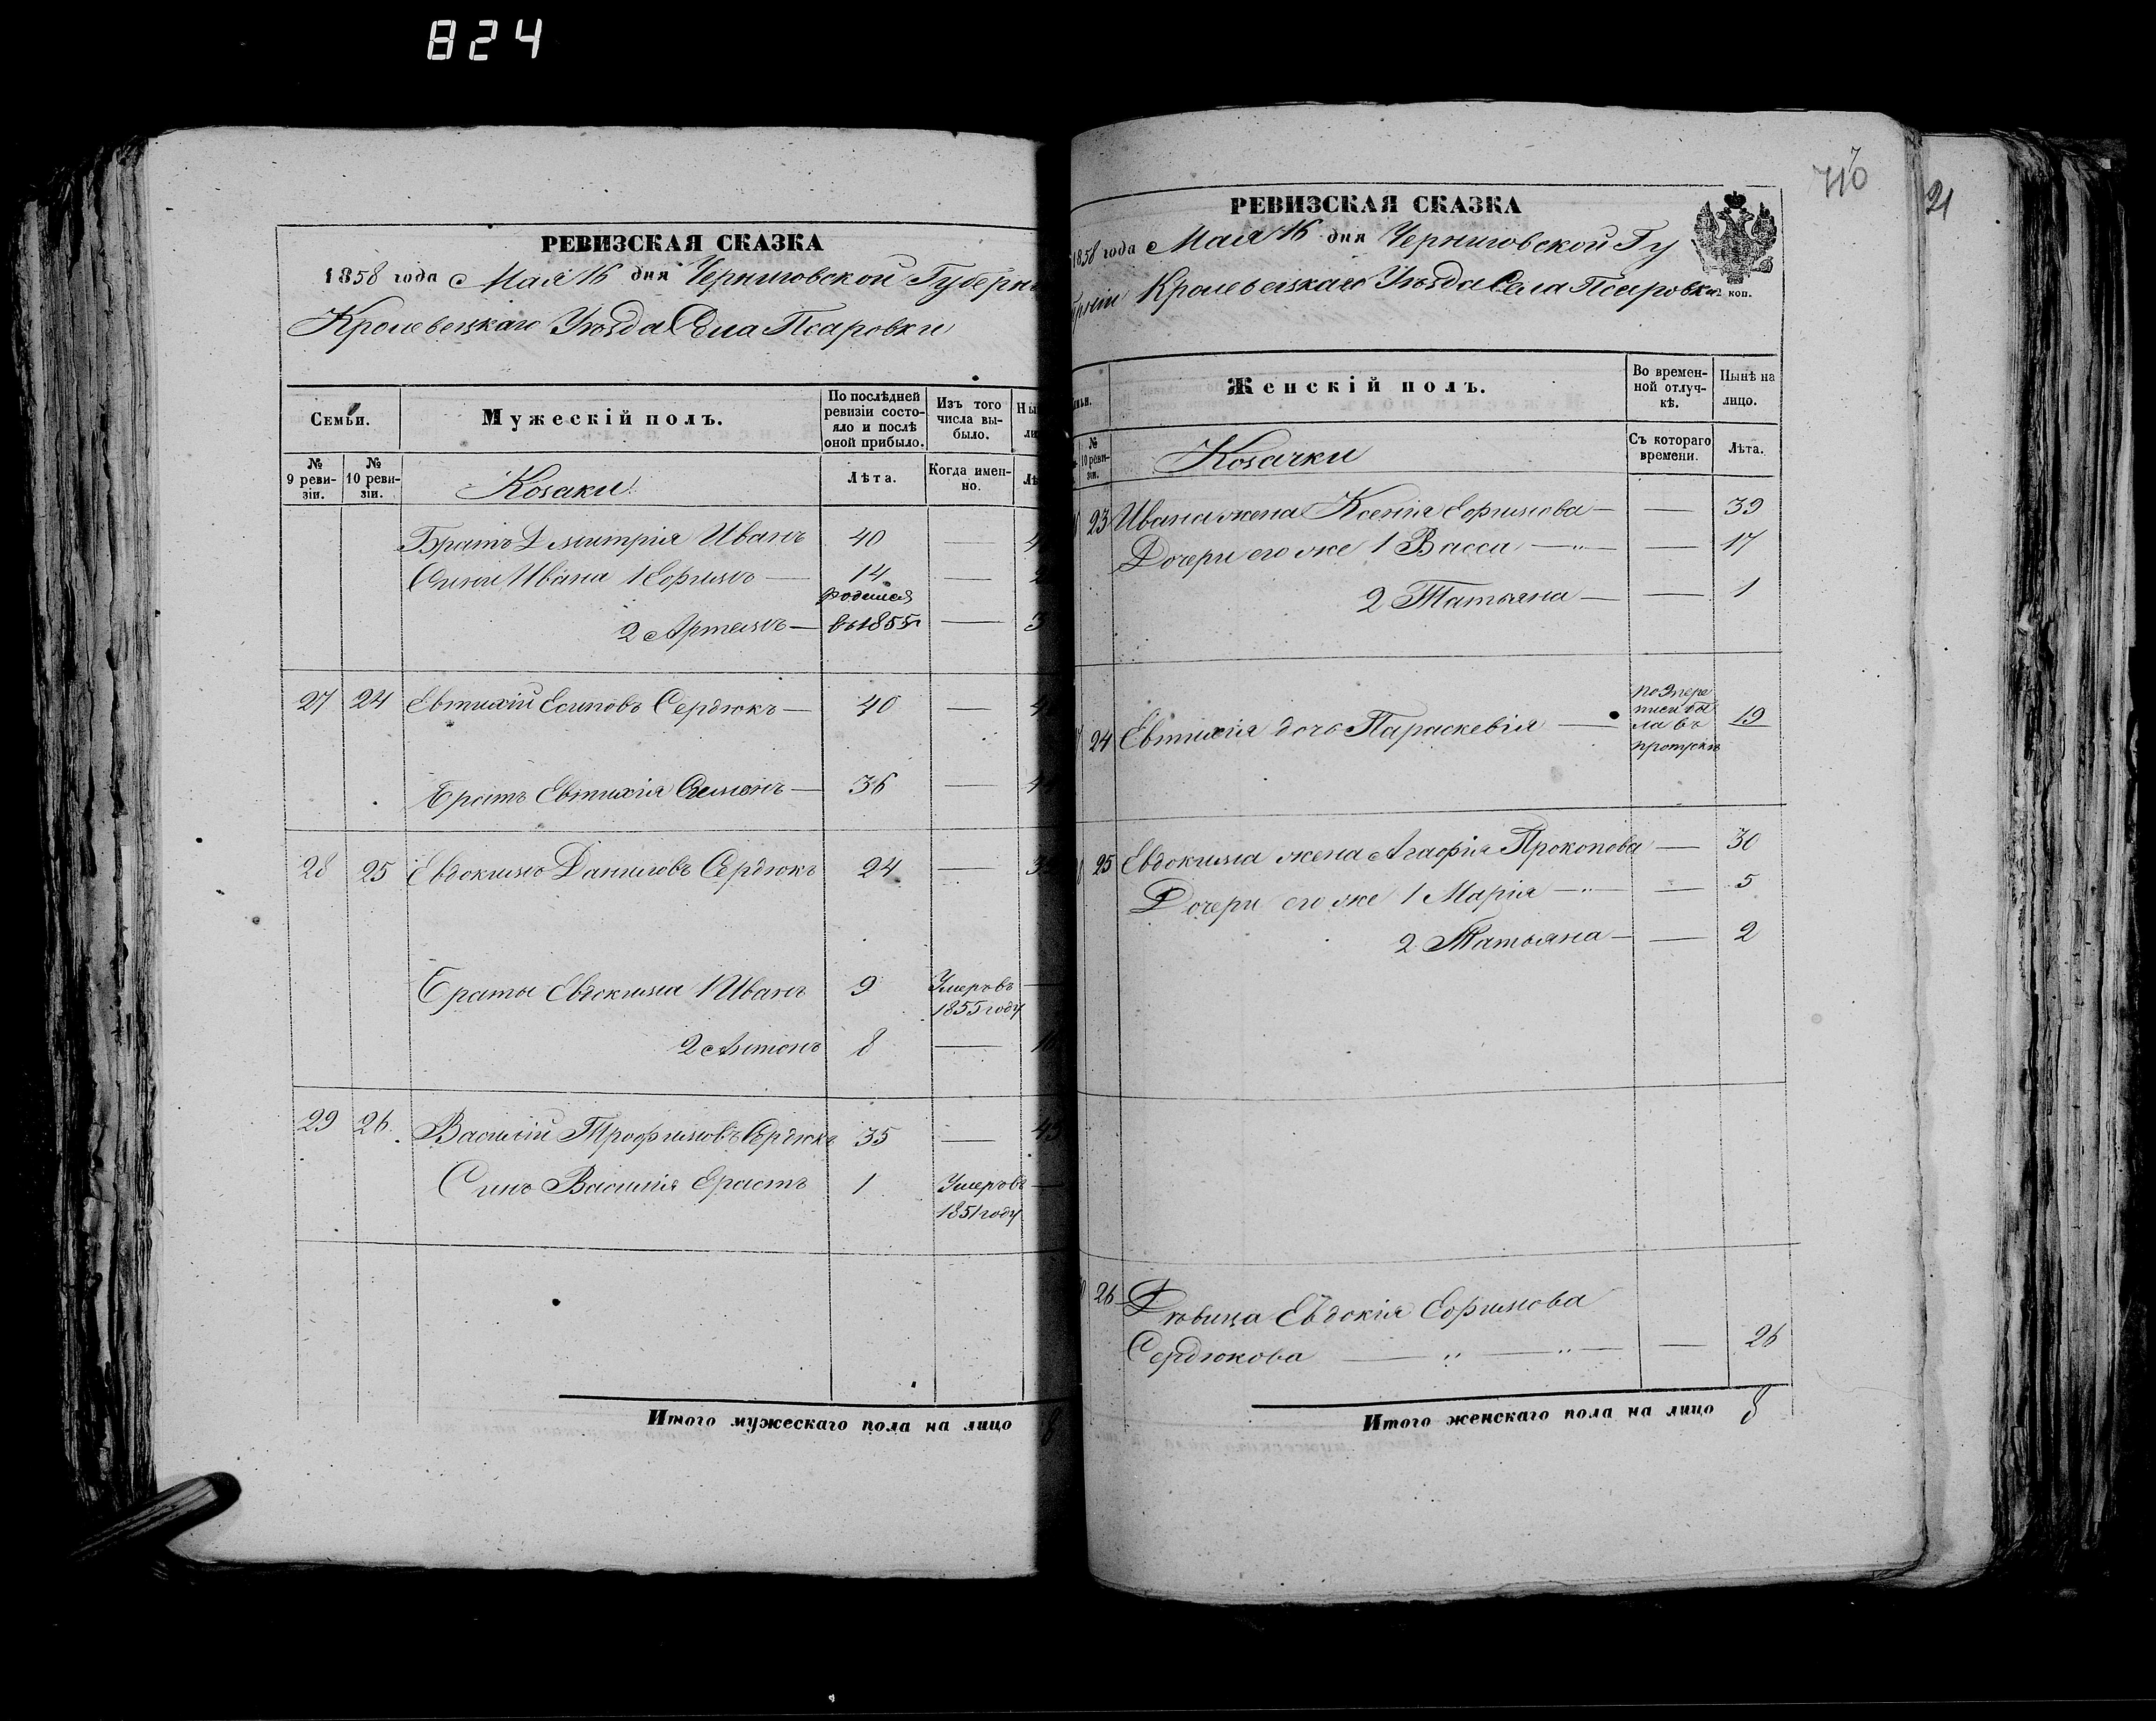 824
РЕВИЗСКАЯ СКАЗКА
1858 года Мая 16 дня Черниговской Губерн
Кролевецкаго Уѣзда Села Псаровки
Семьи.
Мужескій полъ.
По послѣдней ревизіи состояло и послѣ оной прибыло.
Изъ того числа выбыло.
№ 9 ревизіи.
№ 10 ревизіи.
Козаки
Лѣта.
Когда именно.
Братъ Дмитрія Иванъ 40 —
Сыны Ивана 1 Ефимъ — 14 —
родился
2 Артемъ — въ 1855 г —
27 24 Евтихій Есиповъ Сердюкъ — 40 —
Братъ Евтихія Семенъ — 36 —
28 25 Евдокимъ Даниловъ Сердюкъ 24 —
Браты Евдокима 1 Иванъ 9 Умеръ въ —
1855 году
2 Антонъ 8 —
29 26 Василій Трофимовъ Сердюкъ 35 —
Сынъ Василія Ерастъ 1 Умеръ въ —
1851 году
Итого мужескаго пола на лицо 8
710
21
РЕВИЗСКАЯ СКАЗКА
1858 года Мая 16 дня Черниговской Гу
берніи Кролевецкаго Уѣзда Села Псаровки
коп.
Женскій полъ.
Во временной отлучкѣ.
Нынѣ на лицо.
№ 10 ревизіи.
Козачки
Съ котораго времени.
Лѣта.
23 Ивана жена Ксенія Ефимова — — 39
Дочери его же 1 Васса — „ — — 17
2 Татьяна — — 1
24 Евтихія дочь Параскевія — по 9 пере
писи бы
ла въ 19
пропускѣ
25 Евдокима жена Агафія Прокопова — 30
Дочери его же 1 Марія — „ — — 5
2 Татьяна — — 2
26 Дѣвица Евдокія Ефимова
Сердюкова — „ — „ — — 26
Итого женскаго пола на лицо 8